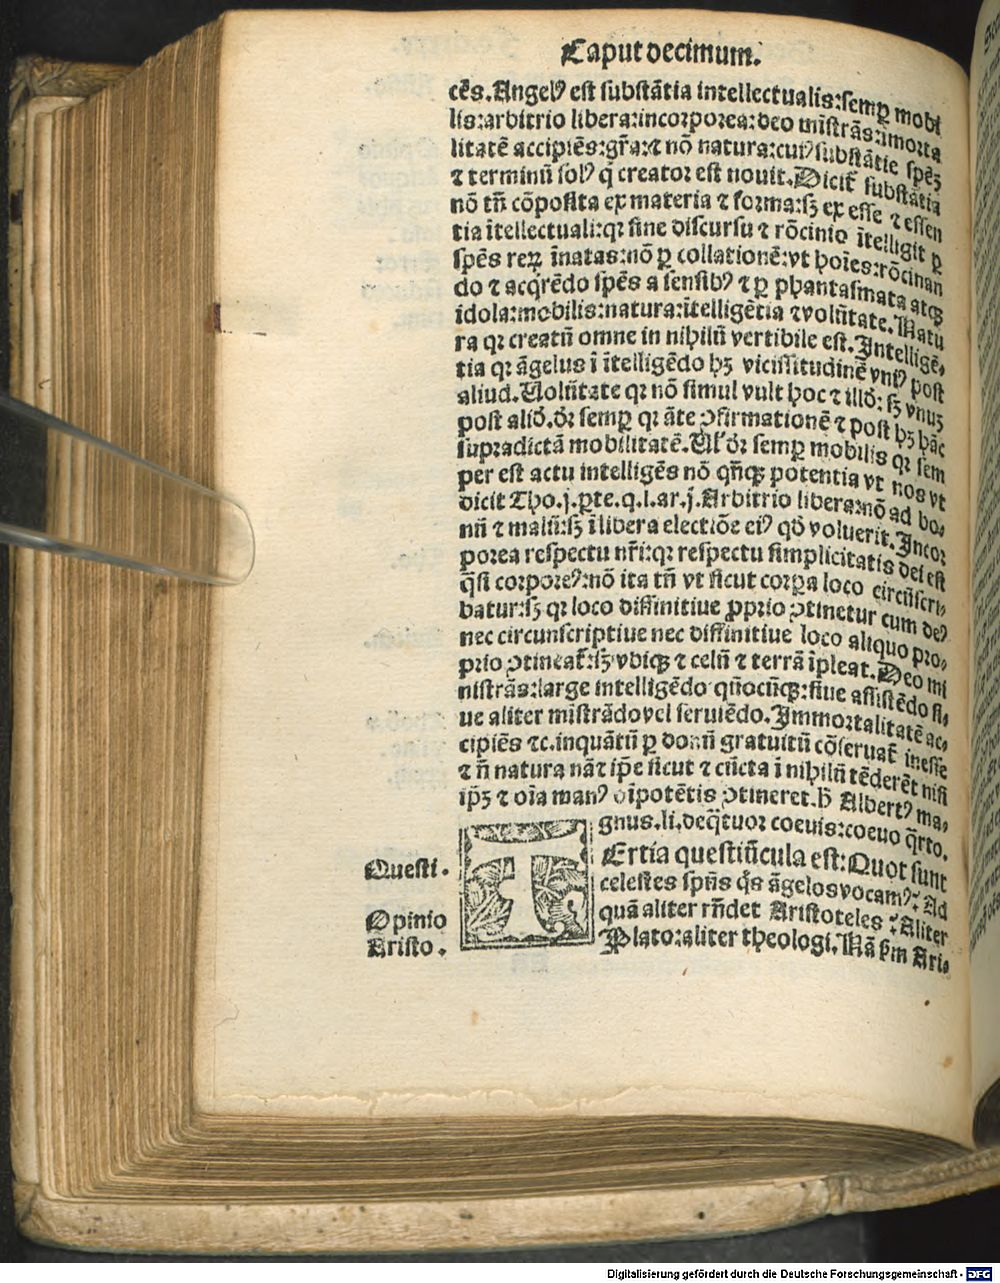 Caput decimum.
cēs. Angelꝰ est substātia intellectualis: semꝑ mobi
lis: arbitrio libera: incorporea: deo mīstrās: īmorta
litatē accipiēs: gr̄a: ⁊ nō natura: cuiꝰ substātie spēȝ
⁊ terminū solꝰ q̇ creator est nouit. Dicit̄ substātia
nō tn̄ cōposita ex materia ⁊ forma: sȝ ex esse ⁊ essen
tia ītellectuali: qꝛ sine discursu ⁊ rōcinio ītelligit ꝑ
spēs reꝝ īnatas: nō ꝑ collationē: vt hoīes: rōcinan
do ⁊ acq̇rēdo spēs a sensibꝰ ⁊ ꝑ phantasmata atqꝫ
idola: mobilis: natura: ītelligētia ⁊ volūtate. Natu
ra qꝛ creatū omne in nihilū vertibile est. Intelligē⸗
tia qꝛ āgelus ī ītelligēdo hȝ vicissitudinē vniꝰ post
aliud. Volūtate qꝛ nō simul vult hoc ⁊ illḋ: sȝ vnuȝ
post aliḋ. dr̄ semꝑ qꝛ āte ꝯfirmationē ⁊ post hȝ hāc
supradictā mobilitatē. Ul̄ dr̄ semꝑ mobilis qꝛ sem
per est actu intelligēs nō qn̄qꝫ potentia vt nos vt
dicit Tho. j. ꝑte. q. l. ar. j. Arbitrio libera: nō ad bo⸗
nū ⁊ malū: sȝ ī libera electiōe eiꝰ qḋ voluerit. Incor
porea respectu nr̄i: qꝛ respectu simplicitatis dei est
q̄si corporeꝰ: nō ita tn̄ vt sicut corꝑa loco circūscri⸗
batur: sȝ qꝛ loco diffinitiue ꝓprio ꝯtinetur cum deꝰ
nec circunscriptiue nec diffinitiue loco aliquo pro⸗
prio ꝯtineat̄: sȝ vbiqꝫ ⁊ celū ⁊ terrā īpleat. Deo mi
nistrās: large intelligēdo qn̄ocūqꝫ: siue assistēdo si⸗
ue aliter mīstrādo vel seruiēdo. Immortalitatē ac⸗
cipiēs ⁊c. inquātū ꝑ donū gratuitū cōseruat̄ inesse
⁊ n̄ natura nā ⁊ ip̄e sicut ⁊ cūcta ī nihilū tēderēt nisi
ip̄ȝ ⁊ oīa manꝰ oīpotētis ꝯtineret. h̄ Albertꝰ ma⸗
gnus. li. de q̄tuor coeuis: coeuo q̄rto.
Questi.
TErtia questiūcula est: Quot sunt
celestes spūs q̇s āgelos vocamꝰ: Ad
Opinio
quā aliter rn̄det Aristoteles: Aliter
Aristo.
Plato: aliter theologi. Nā ẜm Ari⸗
Digitalisierung gefördert durch die Deutsche Forschungsgemeinschaft - DFG